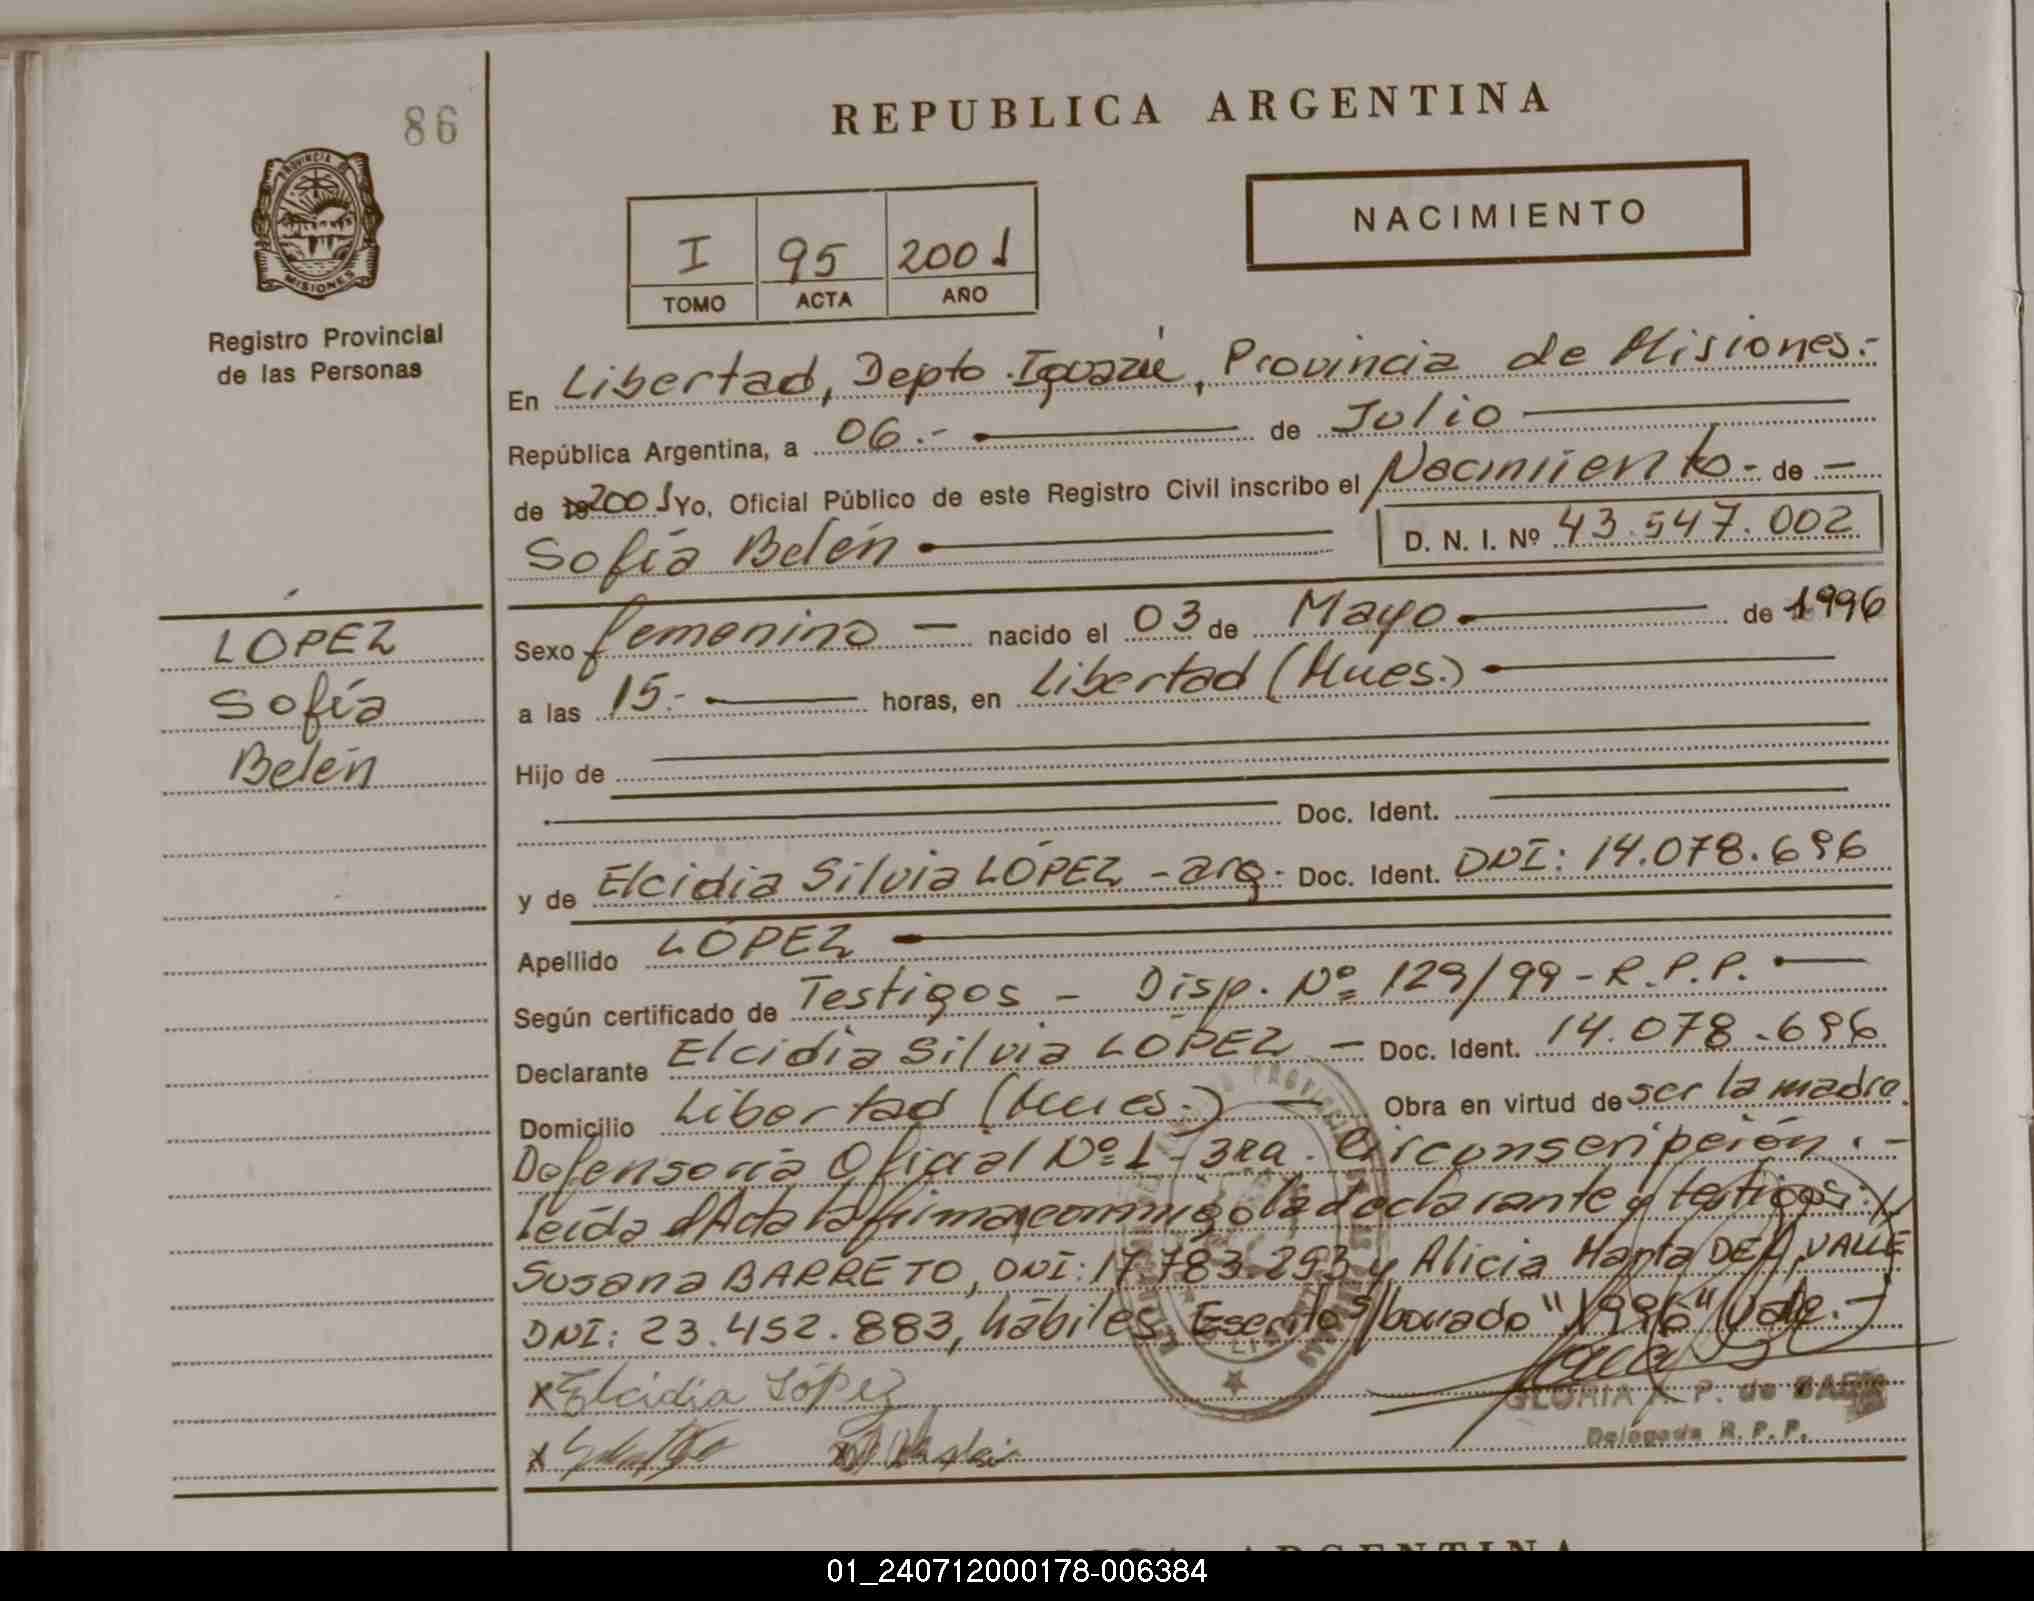 86
REPUBLICA ARGENTINA
PROVINCIA DE
MISIONES
Registro Provincial
de las Personas
NACIMIENTO
I 95 2001
TOMO ACTA AÑO
En Libertad, Depto. Iguazú, Provincia de Misiones.-
República Argentina, a 06.- de Julio
de 19 2001 Yo, Oficial Público de este Registro Civil inscribo el Nacimiento - de -
Sofía Belén
D. N. I. Nº 43.547.002
LOPEZ
Sofía
Belén
Sexo femenino - nacido el 03 de Mayo de 1996
a las 15.- horas, en Libertad (Mnes.)
Hijo de
Doc. Ident.
y de Elcidia Silvia LÓPEZ - arg.- Doc. Ident. DNI: 14.078.696
Apellido LÓPEZ
Según certificado de Testigos - Disp. Nº 129/99 - R.P.P.
Declarante Elcidia Silvia LÓPEZ - Doc. Ident. 14.078.696
Domicilio Libertad (Mnes.) - Obra en virtud de ser la madre.
Defensoría Oficial Nº 1 - 3ra. Circunscripción.-
leída el Acta la firman conmigo la declarante y testigos:
Susana BARRETO, DNI: 17.783.293 y Alicia Marta DEL VALLE
DNI: 23.452.883, hábiles. Escrito s/borrado "1996" Vale.-
x Elcidia López
GLORIA A. P. de
Delegada R. P. P.
x
x
REPUBLICA ARGENTINA
01_240712000178-006384